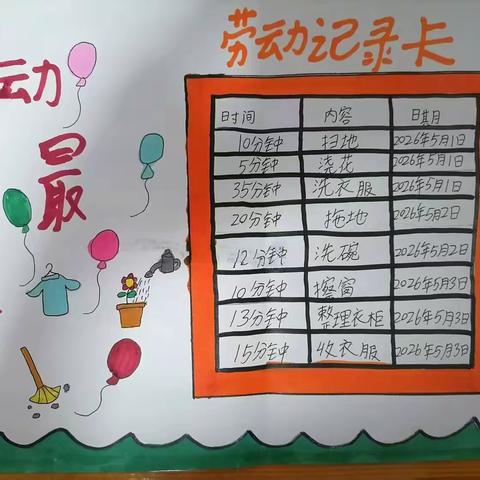 劳动记录卡
动
最
时间 内容 日期月
10分钟 扫地 2026年5月1日
5分钟 浇花 2026年5月1日
35分钟 洗衣服 2026年5月1日
20分钟 拖地 2026年5月2日
12分钟 洗碗 2026年5月2日
10分钟 擦窗 2026年5月3日
13分钟 整理衣柜 2026年5月3日
15分钟 收衣服 2026年5月3日